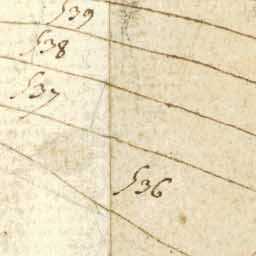 539
538
537
536